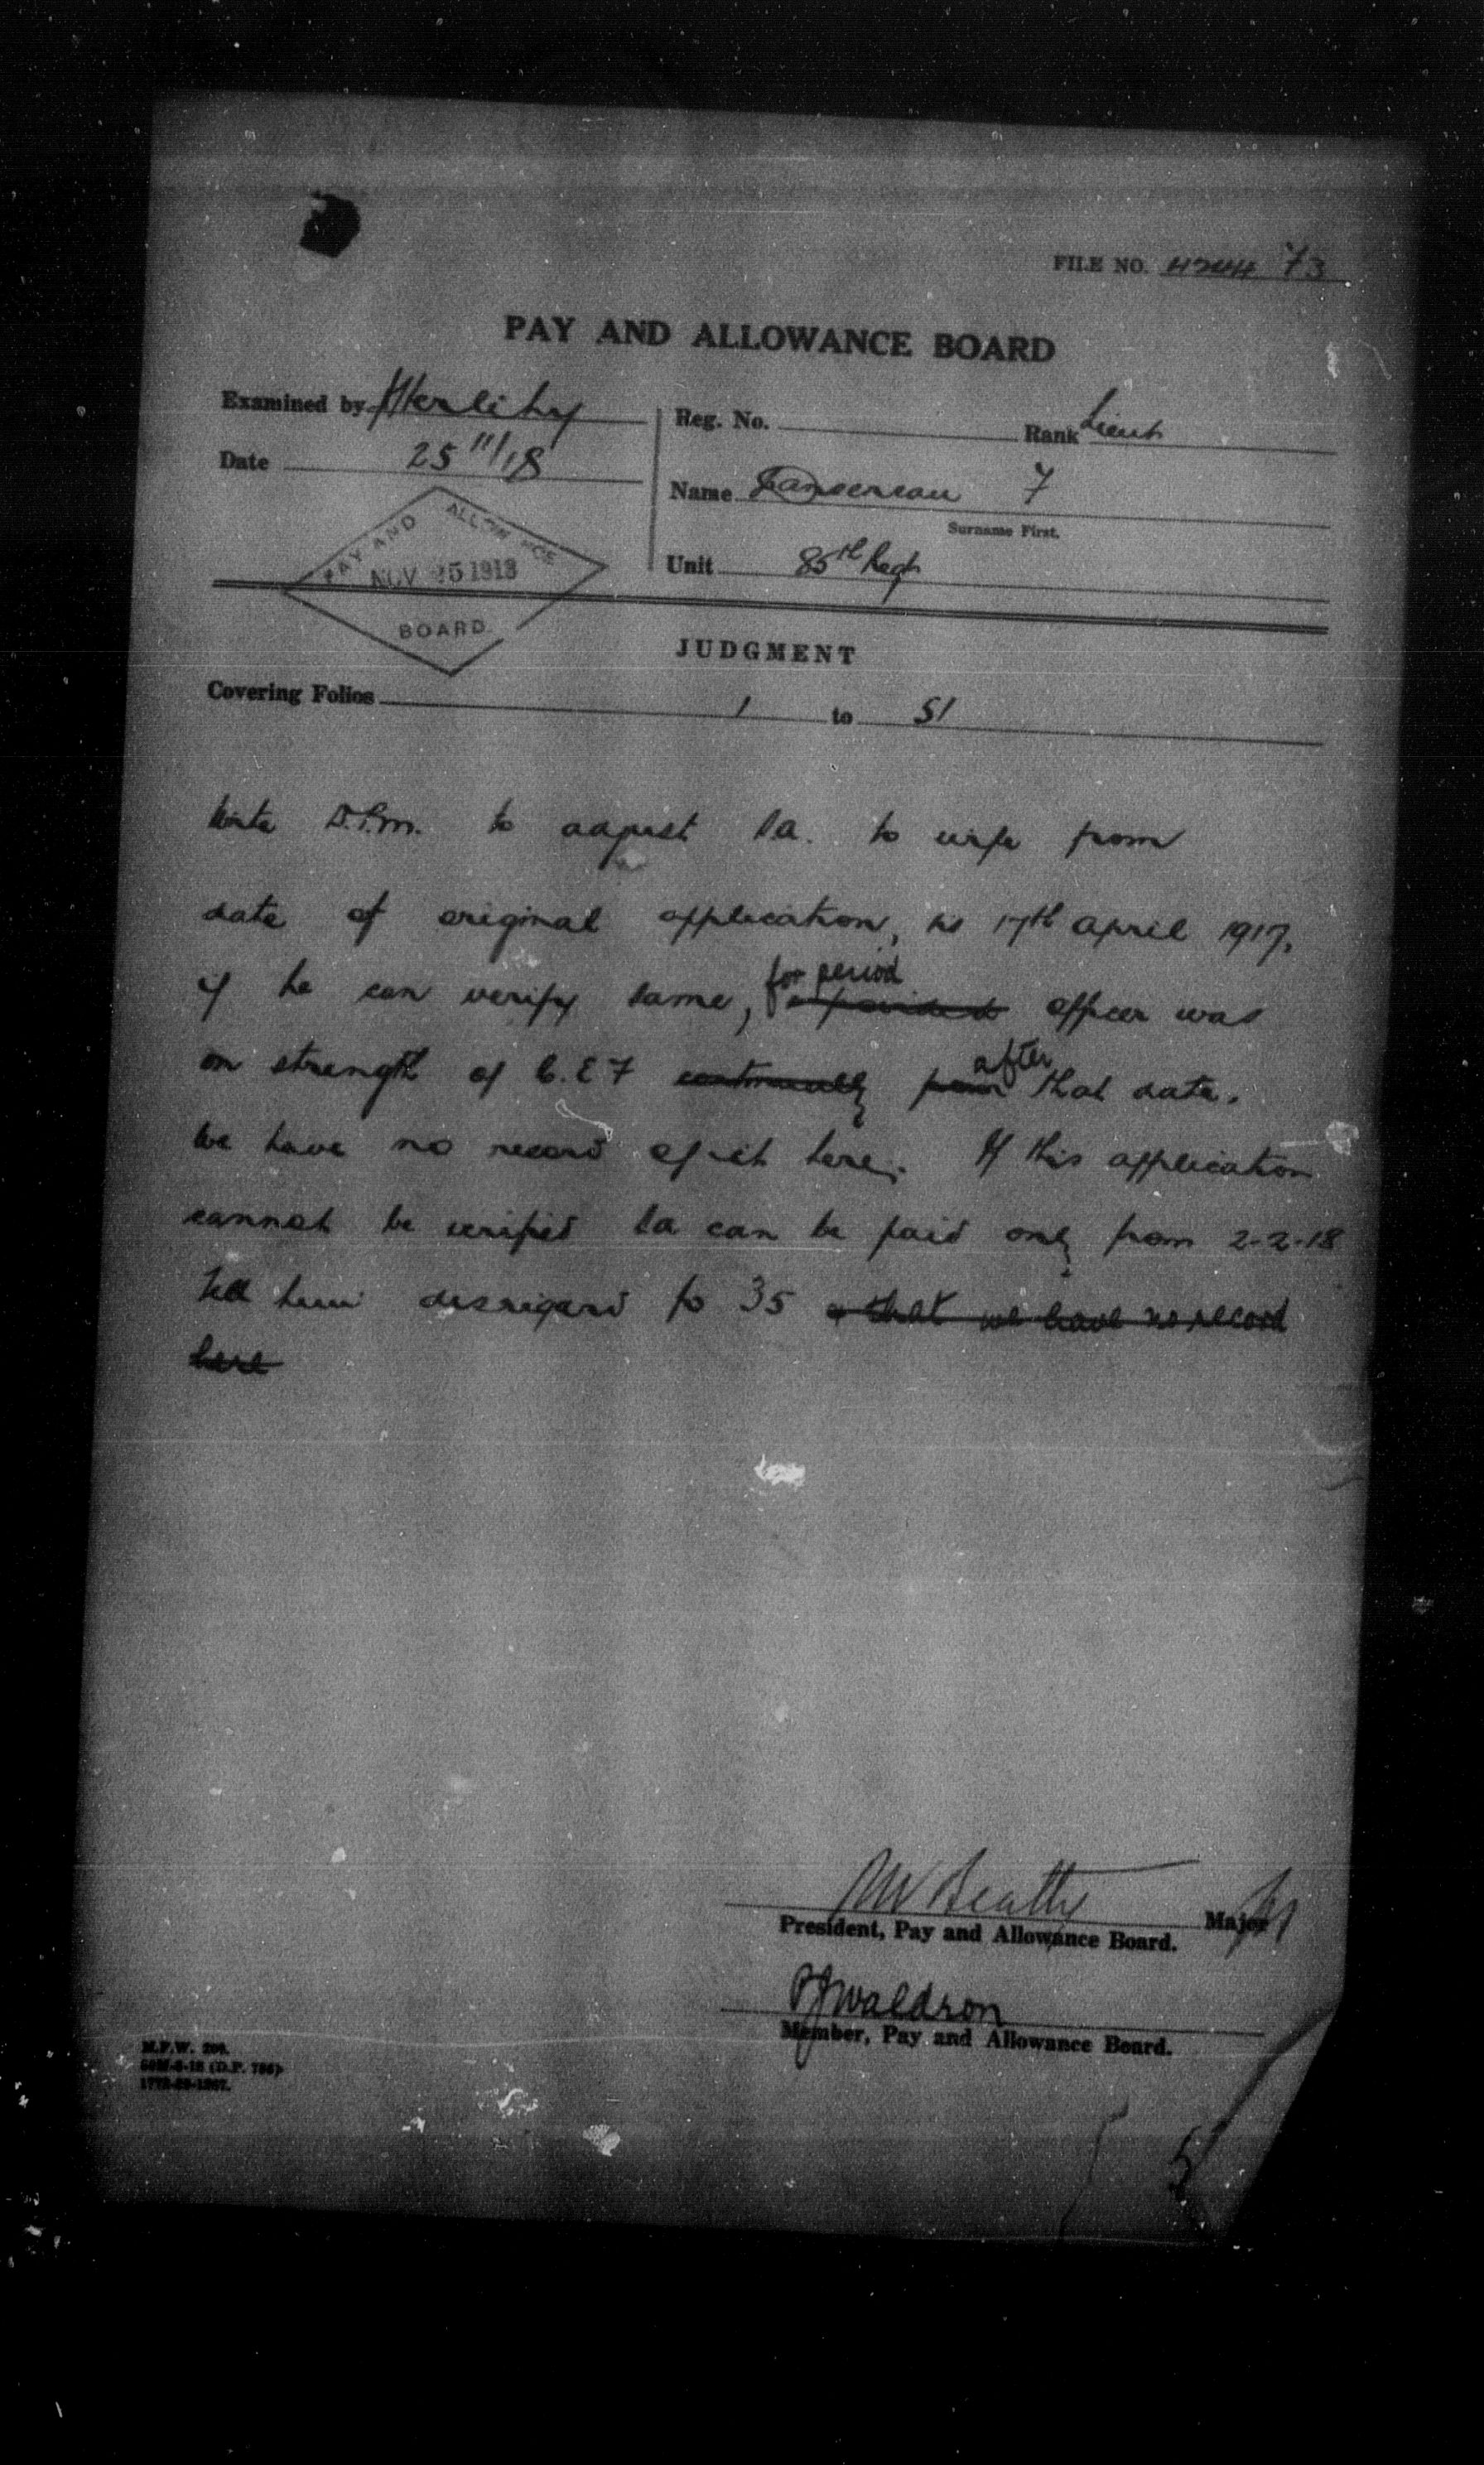 FILE NO. 4244 73
PAY AND ALLOWANCE BOARD
Examined by Herlihy
Reg. No. Rank Lieut
Date 25 11/18
Name Sansereau F
Surname First.
PAY AND ALLOWANCE
NOV 25 1918
BOARD
Unit 85th Regt
JUDGMENT
Covering Folios 1 to 51
Write D.P.M. to adjust SA. to wife from
date of original application, is 17th April 1917,
for period
if he can verify same, provided officer was
after
on strength of C.E.F continually from that date.
We have no record of it here. If this application
cannot be verified SA can be paid only from 2-2-18
Tell him disregard fo 35 & that we have no record
here
Beatty Major
President, Pay and Allowance Board.
PJ Waldron
Member, Pay and Allowance Board.
M.F.W. 209.
50M-8-18 (D.P. 786)
1772-39-1267.